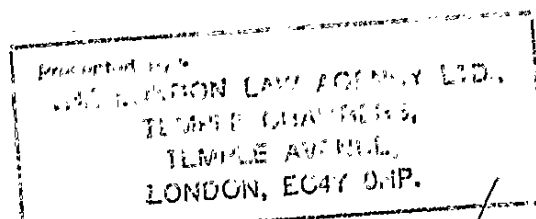 Presented by:
THE LONDON LAW AGENCY LTD.,
TEMPLE CHAMBERS,
TEMPLE AVENUE,
LONDON, EC4Y 0HP.